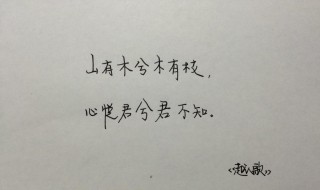 山有木兮木有枝,
心悦君兮君不知.
《越人歌》